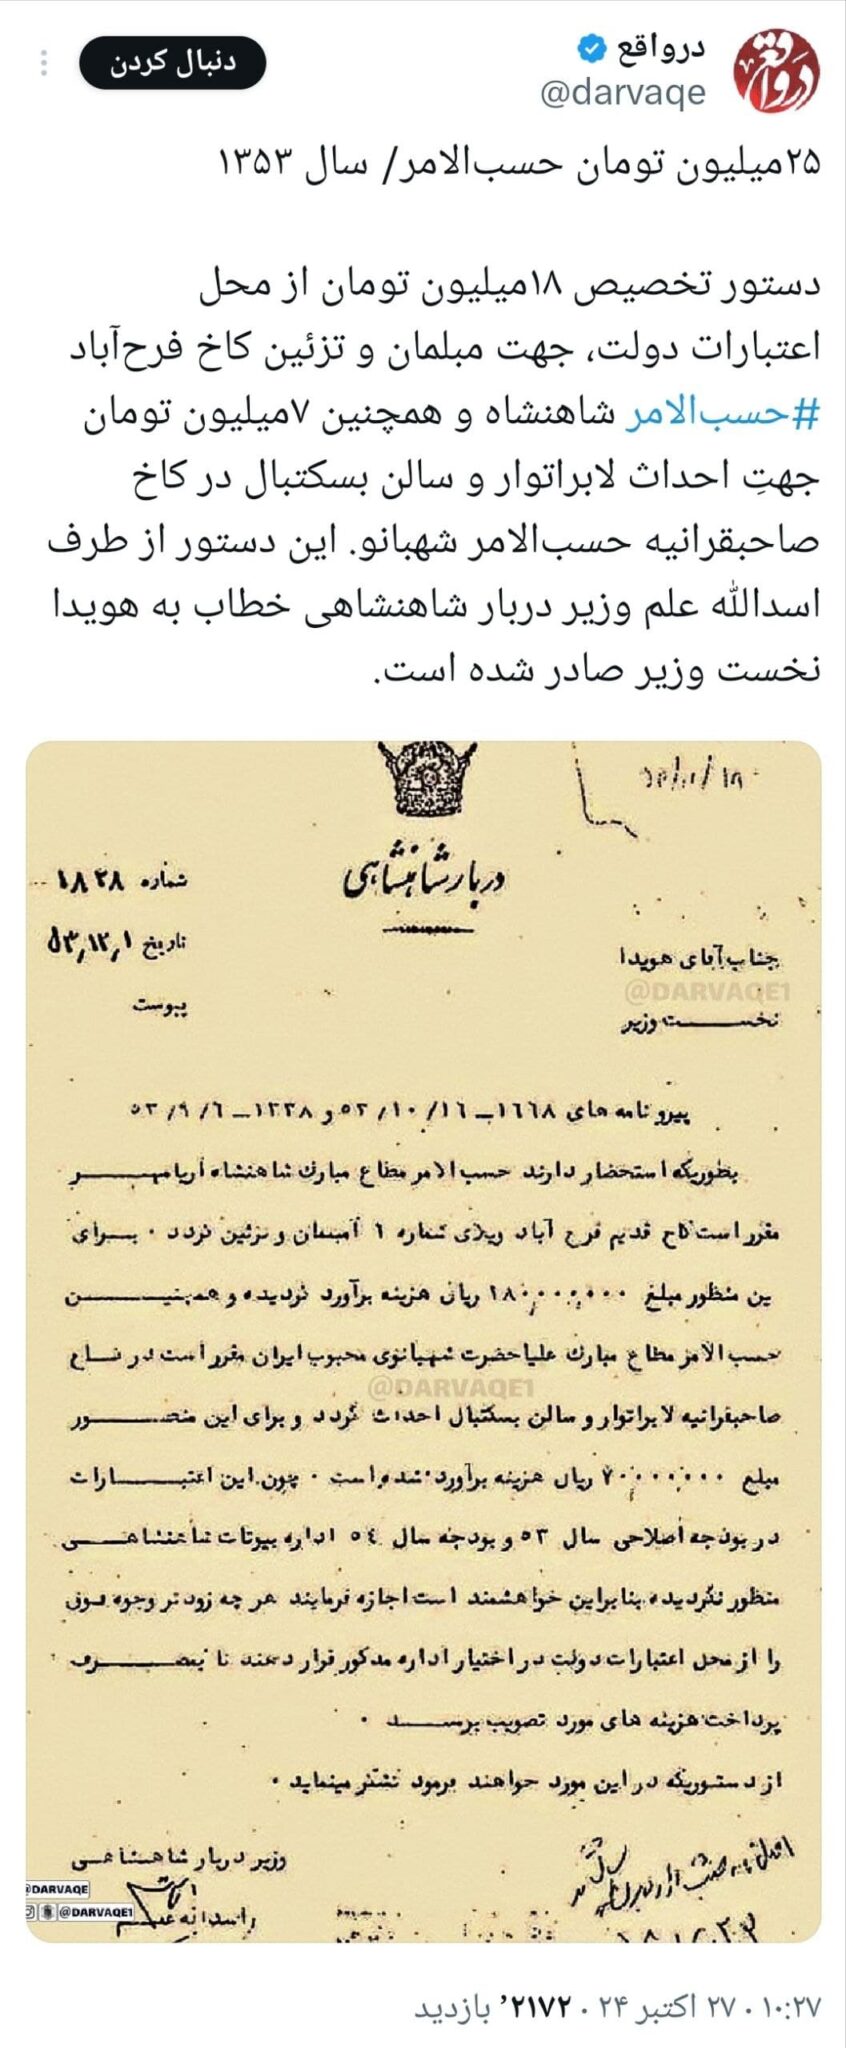 درواقع
@darvaqe
دنبال کردن
۲۵میلیون تومان حسب‌الامر/ سال ۱۳۵۳
دستور تخصیص ۱۸میلیون تومان از محل
اعتبارات دولت، جهت مبلمان و تزئین کاخ فرح‌آباد
#حسب‌الامر شاهنشاه و همچنین ۷میلیون تومان
جهتِ احداث لابراتوار و سالن بسکتبال در کاخ
صاحبقرانیه حسب‌الامر شهبانو. این دستور از طرف
اسدالله علم وزیر دربار شاهنشاهی خطاب به هویدا
نخست وزیر صادر شده است.
دربار شاهنشاهی
شماره ۱۸۲۸
تاریخ ۵۳,۱۲,۱
پیوست
جناب آقای هویدا
@DARVAQE1
نخست وزیر
پیرو نامه های ۱٦٦۸ـ ۱٦/ ۱۰/ ۵۳ و ۱۳۳۸ـ ٦/ ۹/ ۵۳
بطوریکه استحضار دارند حسب الامر مطاع مبارک شاهنشاه آریامهر
مقرر است کاخ قدیم فرح آباد ویلای شماره ۱ و تزئین گردد ۰ برای
ین منظور مبلغ ۱۸۰,۰۰۰,۰۰۰ ریال هزینه برآورد گردیده و همچنین
حسب الامر مطاع مبارک علیاحضرت شهبانوی محبوب ایران مقرر است در کاخ
@DARVAQE1
صاحبقرانیه لابراتوار و سالن بسکتبال احداث گردد و برای این منظور
مبلغ ۷۰,۰۰۰,۰۰۰ ریال هزینه برآورد شده است ۰ چون این اعتبارات
در بودجه اصلاحی سال ۵۳ و بودجه سال ۵٤ اداره بیوتات شاهنشاهی
منظور نگردیده بنابراین خواهشمند است اجازه فرمایند هر چه زودتر وجوه فوق
را از محل اعتبارات دولت در اختیار اداره مذکور قرار دهند تا بمصرف
پرداخت هزینه های مورد تصویب برسد ۰
از دستوریکه در این مورد خواهند فرمود تشکر مینماید ۰
وزیر دربار شاهنشاهی
اسداله علم
@DARVAQE
@DARVAQE1
۱۰:۲۷ · ۲۷ اکتبر ۲۴ · ۲۱۷۲٬ بازدید